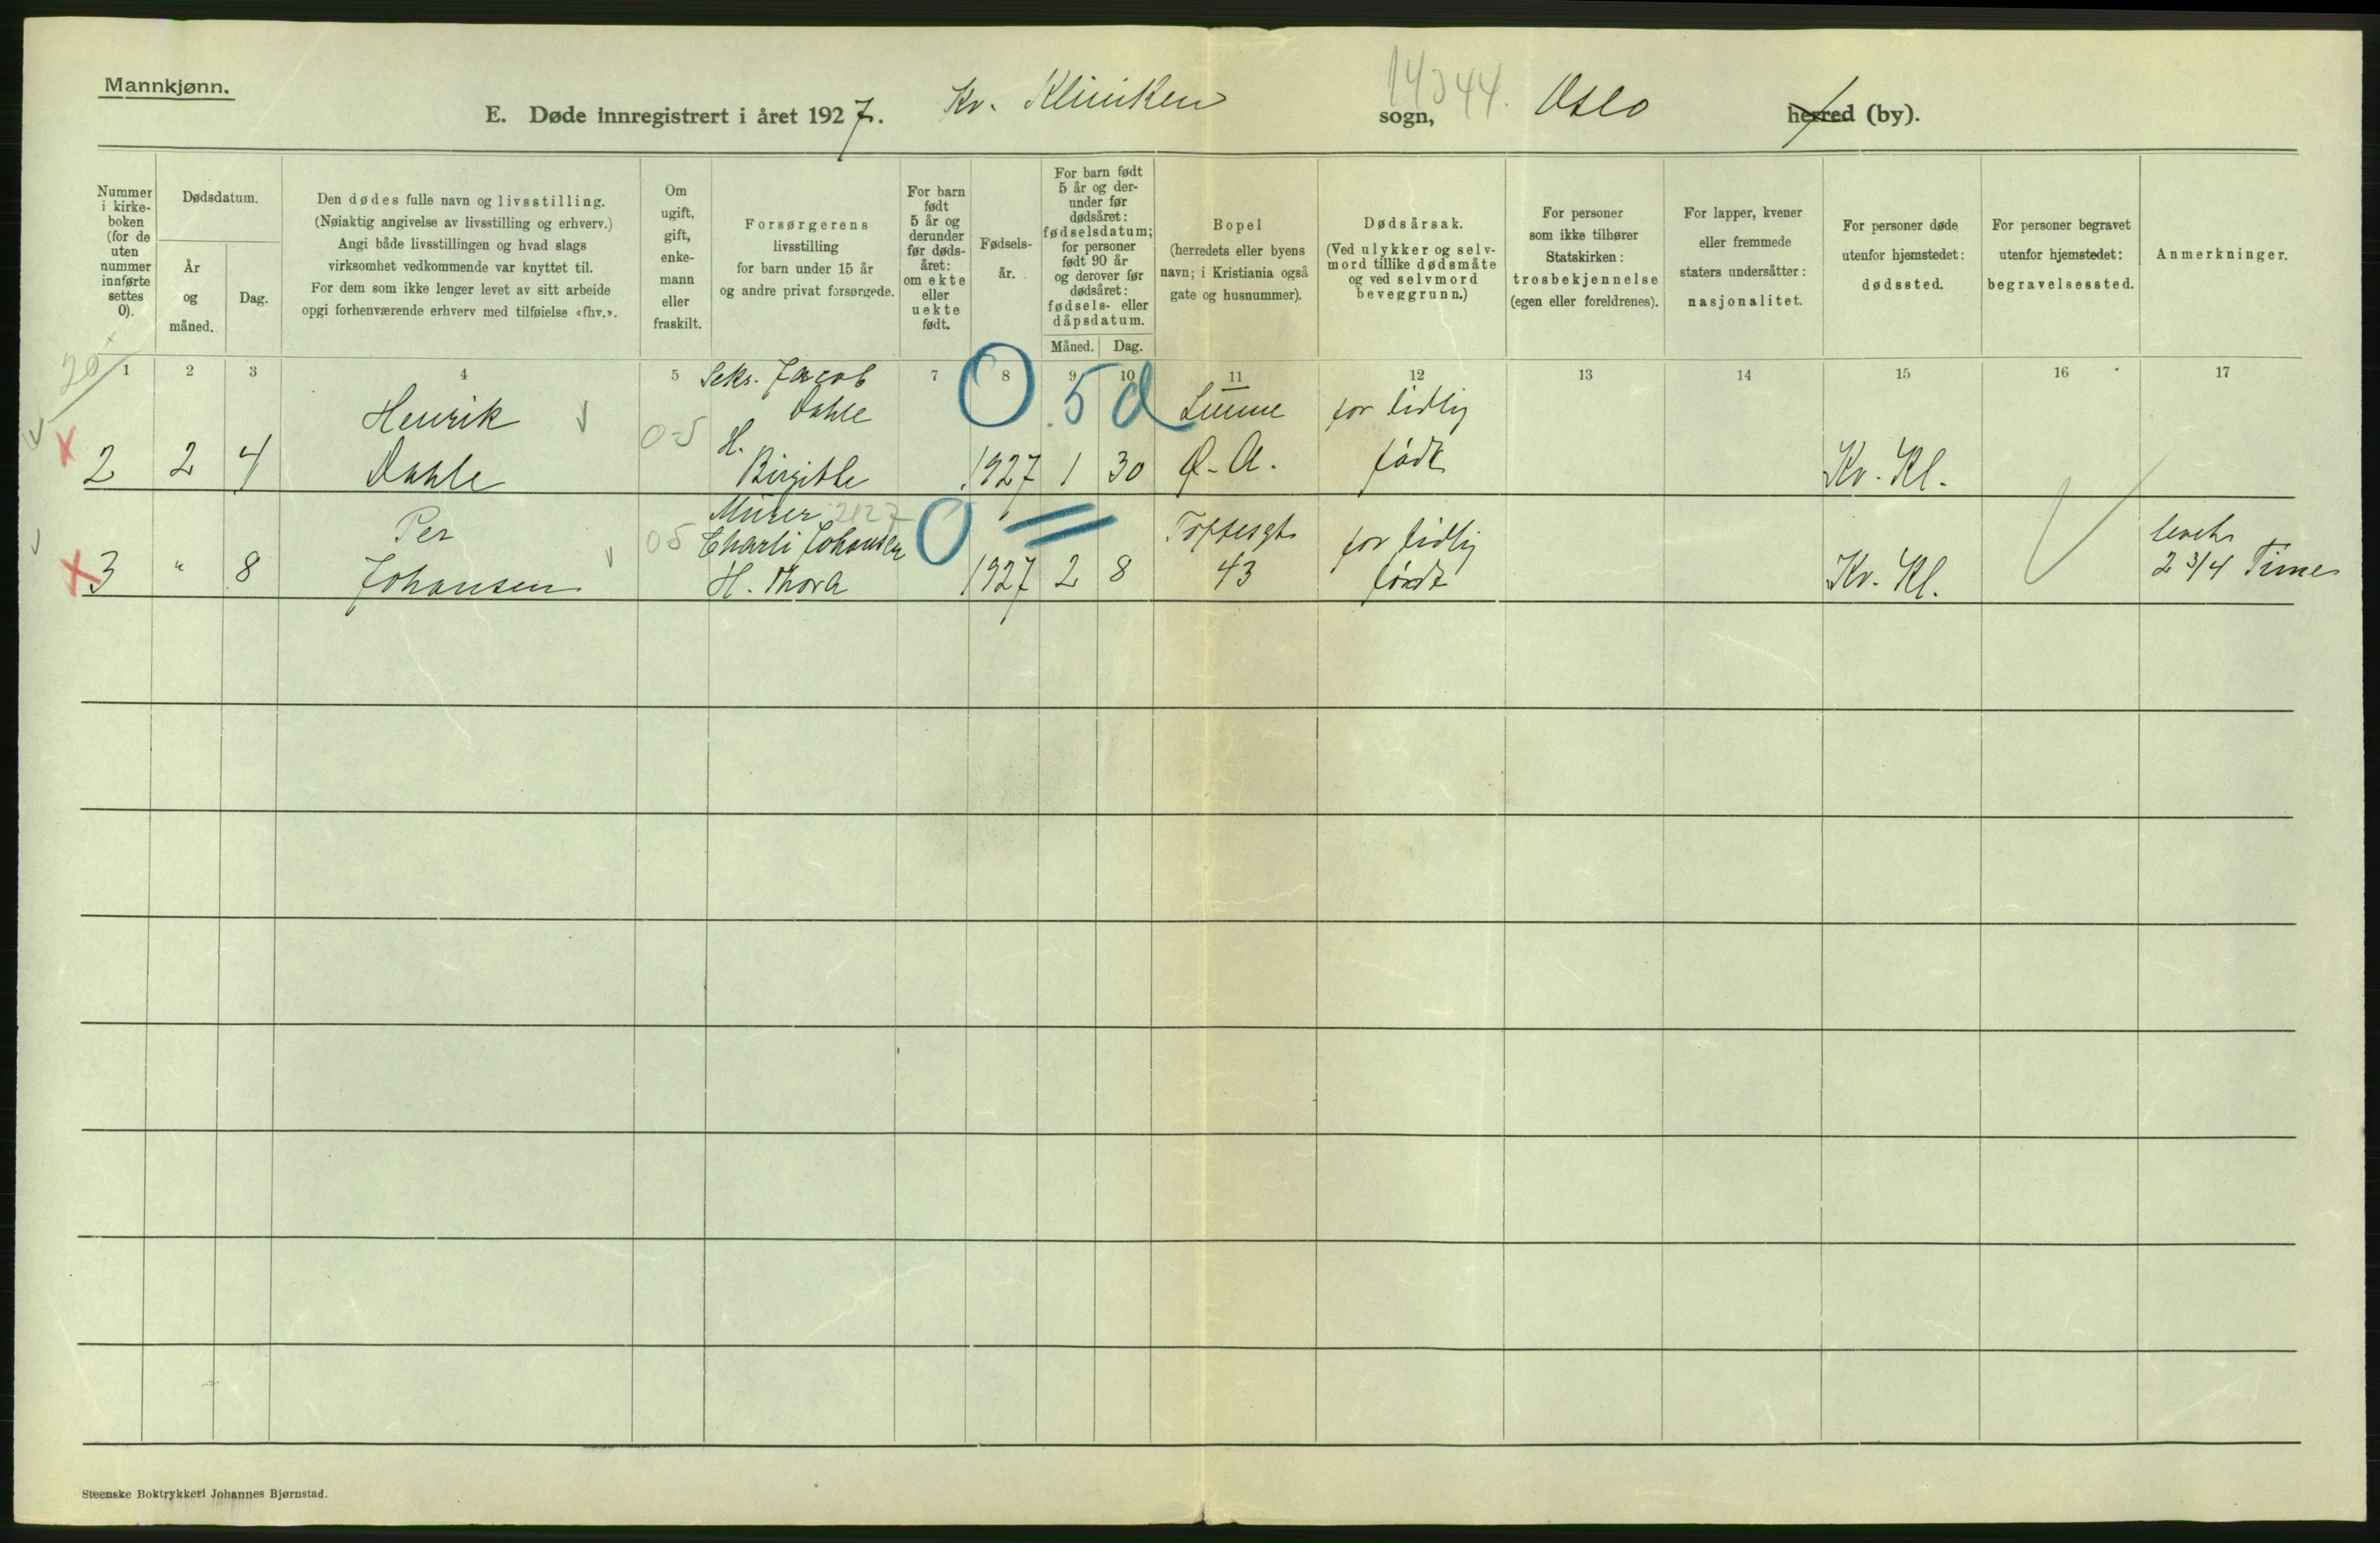 Mannkjønn.
E. Døde innregistrert i året 1927. Kv. Kliniken sogn, 14344. Oslo herred (by).
Nummer i kirke-boken (for de uten nummer innførte settes 0).
Dødsdatum.
År og måned.
Dag.
Den dødes fulle navn og livsstilling.
(Nøiaktig angivelse av livsstilling og erhverv.)
Angi både livsstillingen og hvad slags
virksomhet vedkommende var knyttet til.
For dem som ikke lenger levet av sitt arbeide
opgi forhenværende erhverv med tilføielse «fhv.».
Om ugift, gift, enke-mann eller fraskilt.
Forsørgerens
livsstilling
for barn under 15 år
og andre privat forsørgede.
For barn født 5 år og derunder før døds-året: om ekte eller uekte født.
Fødsels-år.
For barn født 5 år og der-under før dødsåret: fødselsdatum; for personer født 90 år og derover før dødsåret: fødsels- eller dåpsdatum.
Måned. Dag.
Bopel
(herredets eller byens
navn; i Kristiania også
gate og husnummer).
Dødsårsak.
(Ved ulykker og selv-
mord tillike dødsmåte
og ved selvmord
beveggrunn.)
For personer
som ikke tilhører
Statskirken:
trosbekjennelse
(egen eller foreldrenes).
For lapper, kvener
eller fremmede
staters undersåtter:
nasjonalitet.
For personer døde
utenfor hjemstedet:
dødssted.
For personer begravet
utenfor hjemstedet:
begravelsessted.
Anmerkninger.
20
1 2 3 4 5 6 7 8 9 10 11 12 13 14 15 16 17
Seks. Jacob
Henrik Dahle 0 5 d for tidlig
0-5 H.
2 2 4 Dahle Birgitte 1927 1 30 Ø. A. født Kv. Kl.
Murer 2127
Per 05 Charli Johansen 0 = Toftesgt. for tidlig levet
3 " 8 Johansen H. Thora 1927 2 8 43 født Kv. Kl. 2 3/4 Time
Steenske Boktrykkeri Johannes Bjørnstad.